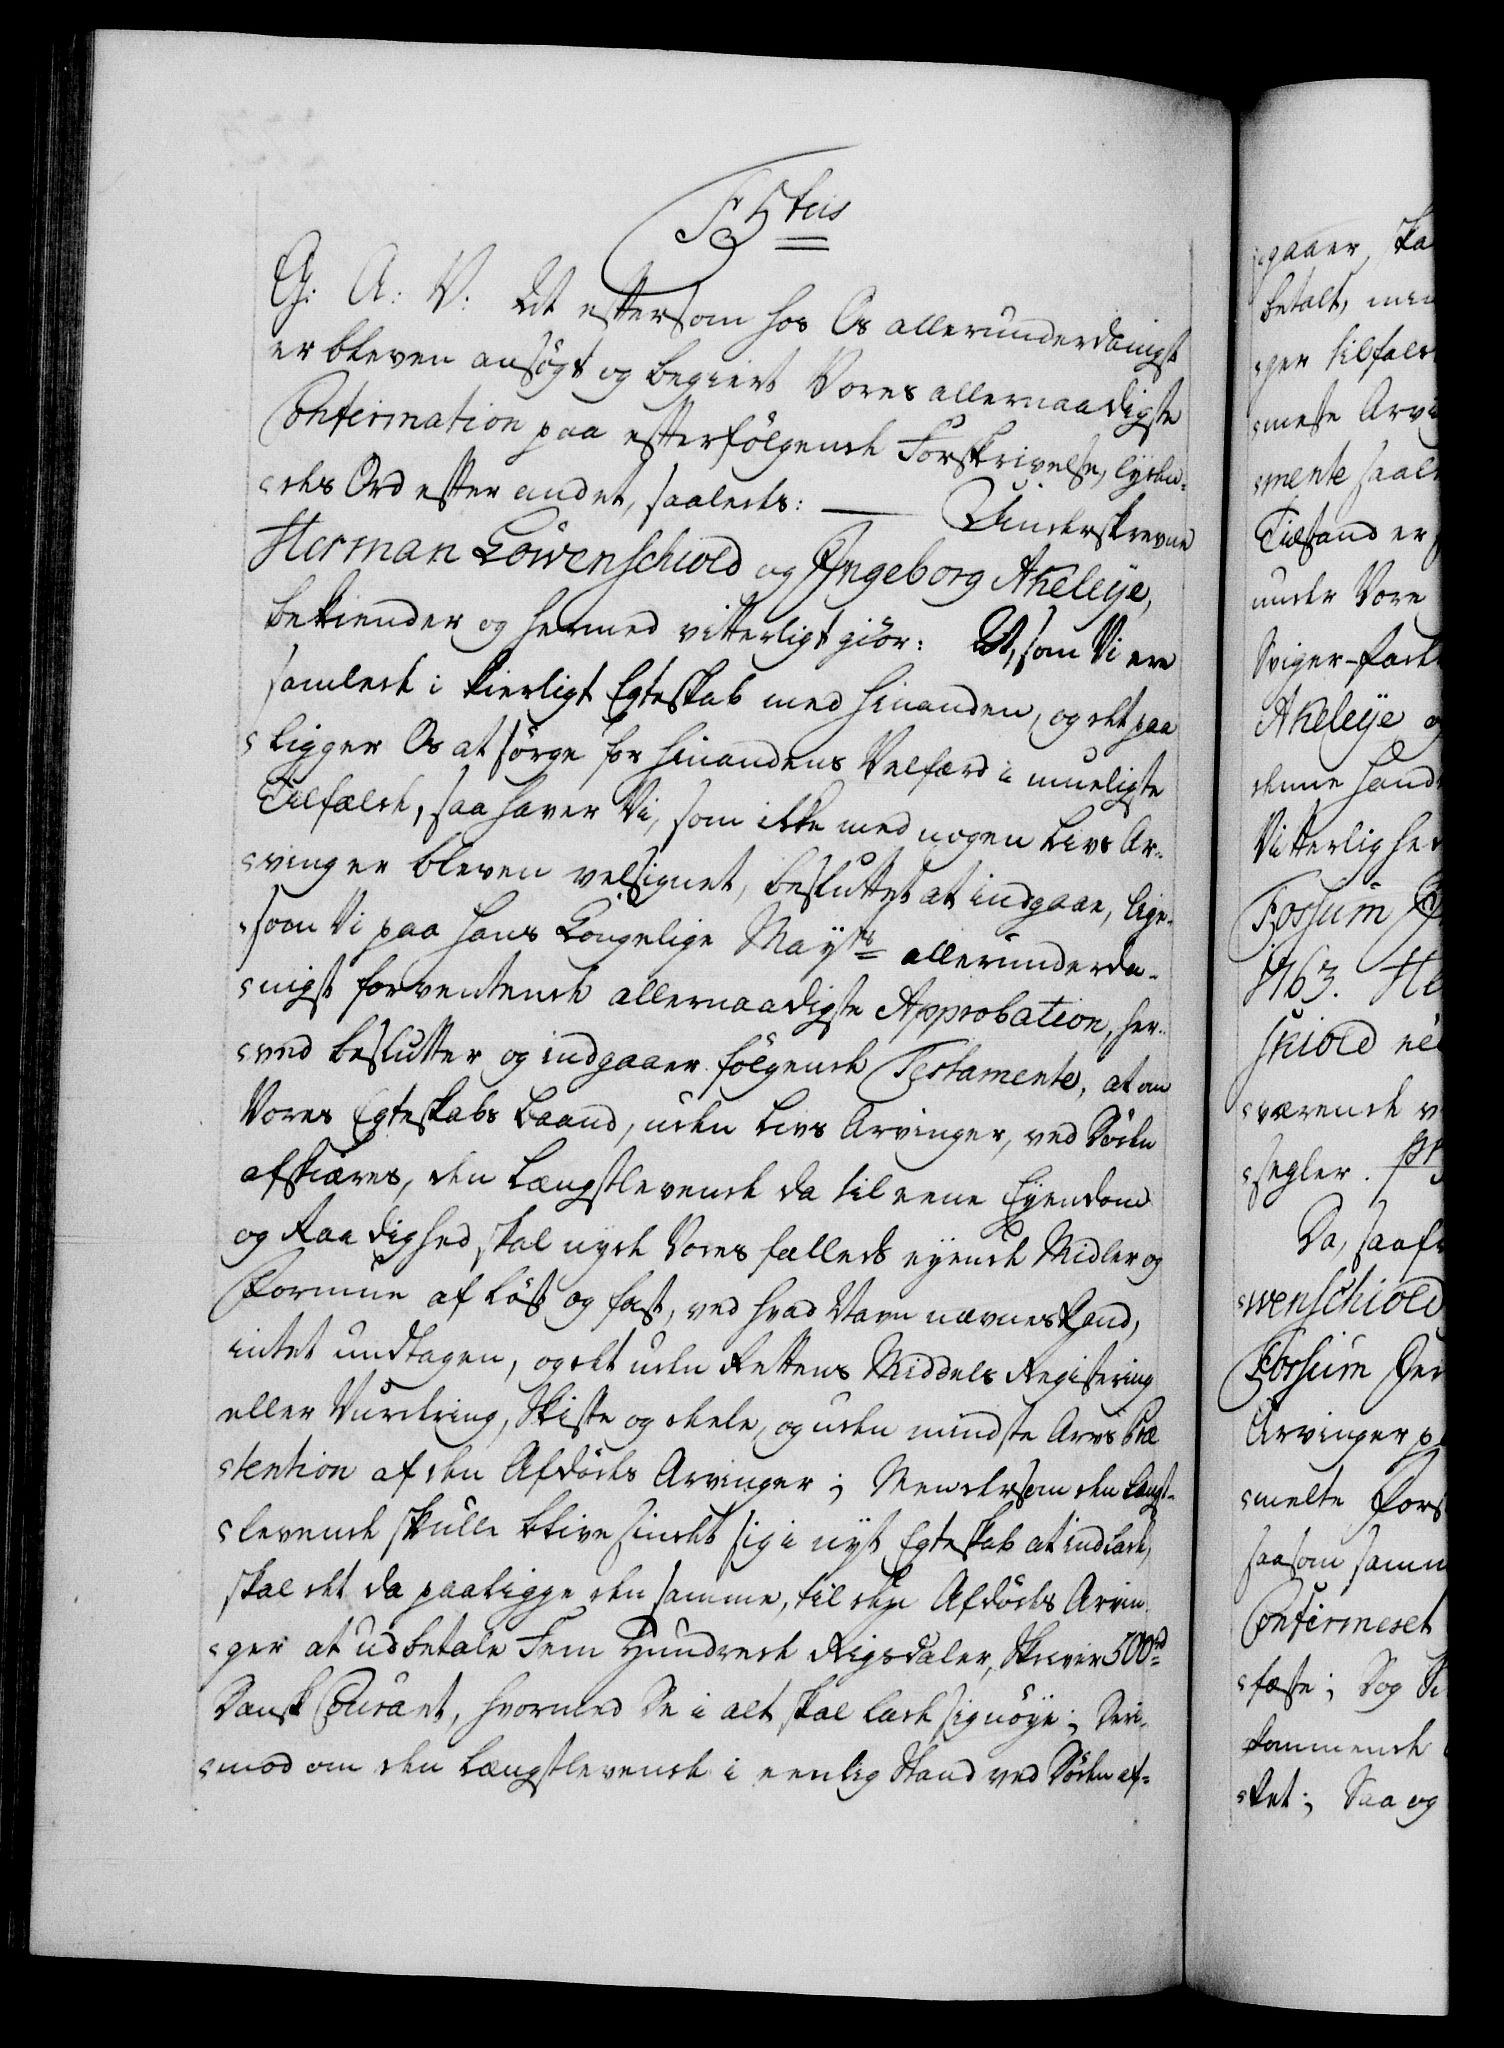 F 5tus
G: A: V. At eftersom hos Os allerunderdanigst
er bleven ansøgt og begiert Vores allernaadigste
Confirmation paa efterfølgende Forskrivelse, lyden-
des Ord efter andet, saaledes: — Underskrevne
Herman Löwenschiold og Ingeborg Akeleÿe,
bekiender og hermed vitterligt giör: At, som Vi ere
samlede i kierligt Egteskab med hinanden, og det paa
ligger Os at sörge for hinandens Velfærd i mueligste
Tilfælde, saa haver Vi, som ikke med nogen Livs Ar-
vinger bleven velsignet, besluttet at indgaae, lige-
som Vi paa Hans Kongelige Mayts allerunderda-
nigst forventende allernaadigste Approbation, her-
ved beslutter og indgaaer følgende Testamente, at om
Vores Egteskabs Baand, uden Livs Arvinger, ved Döden
afskiæres, den Længstlevende da til eene Eyendom
og Raadighed skal nyde Vores fælleds eyende Midler og
Formue af Löst og fast, ved hvad Navn nævnes kand,
intet undtagen, og det uden Rettens Middels Registering
eller Vurdring, Skifte og deele, og uden mindste Arvs Præ
tention af den Afdödes Arvinger; Men dersom den Længst-
levende skulle blive sindet sig i nyt Egteskab at indlade,
skal det da paaligge den samme, til den Afdödes Arvin-
ger at udbetale Fem Hundrede Rigsdaler, Skriver 500rd
Dansk Courant, hvormed De i alt skal lade sig nöye; Deri-
mod om den Længstlevende i eenlig Stand ved Döden af-
gaaer, ska
betalt, men
ger tilfald
meste Arvi
mente saal
Tilstand er
under Vore
Sviger-Fad
Akeleÿe o
denne Hand
Vitterlighed
Fossum
1763. He
skiold
værende v
segler.
Da, saafr
wenschiold
Fossum Jer
Arvinger p
melte Fors
saasom samm
Confirmeret
fæste; Dog
kommende
ket; Saa og